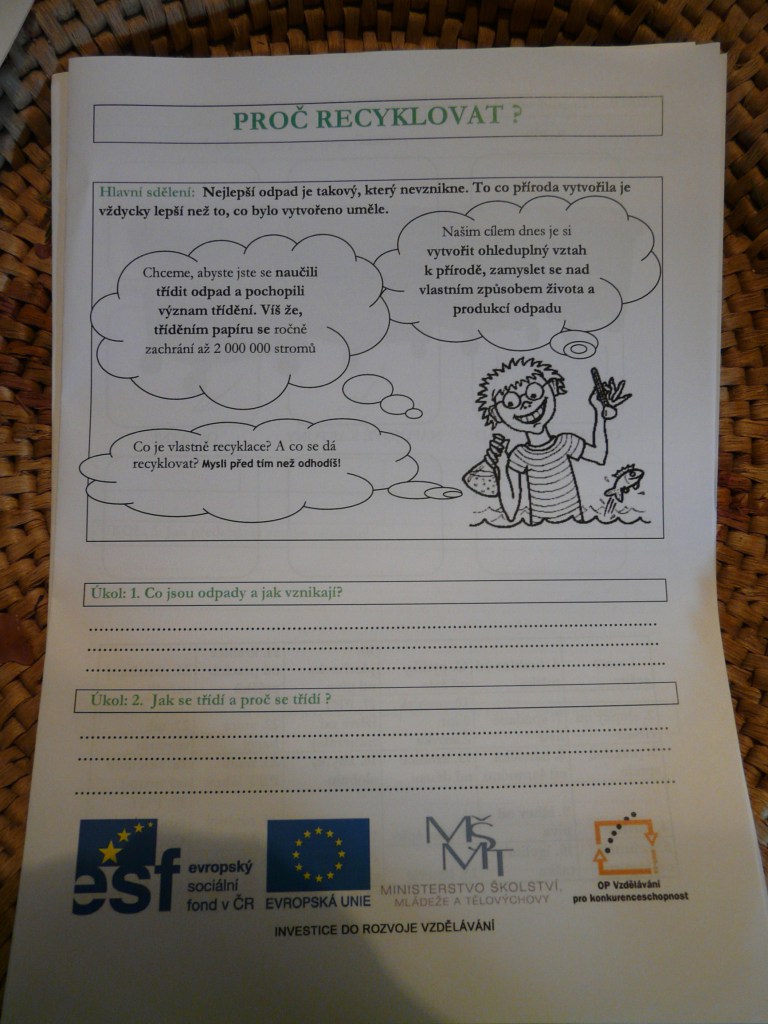 PROČ RECYKLOVAT ?
Hlavní sdělení: Nejlepší odpad je takový, který nevznikne. To co příroda vytvořila je
vždycky lepší než to, co bylo vytvořeno uměle.
Našim cílem dnes je si
vytvořit ohleduplný vztah
k přírodě, zamyslet se nad
vlastním způsobem života a
produkcí odpadu
Chceme, abyste jste se naučili
třídit odpad a pochopili
význam třídění. Víš že,
tříděním papíru se ročně
zachrání až 2 000 000 stromů
Co je vlastně recyklace? A co se dá
recyklovat? Mysli před tím než odhodíš!
Úkol: 1. Co jsou odpady a jak vznikají?
Úkol: 2. Jak se třídí a proč se třídí ?
esf
evropský
sociální
fond v ČR
EVROPSKÁ UNIE
MŠMT
MINISTERSTVO ŠKOLSTVÍ,
MLÁDEŽE A TĚLOVÝCHOVY
OP Vzdělávání
pro konkurenceschopnost
INVESTICE DO ROZVOJE VZDĚLÁVÁNÍ